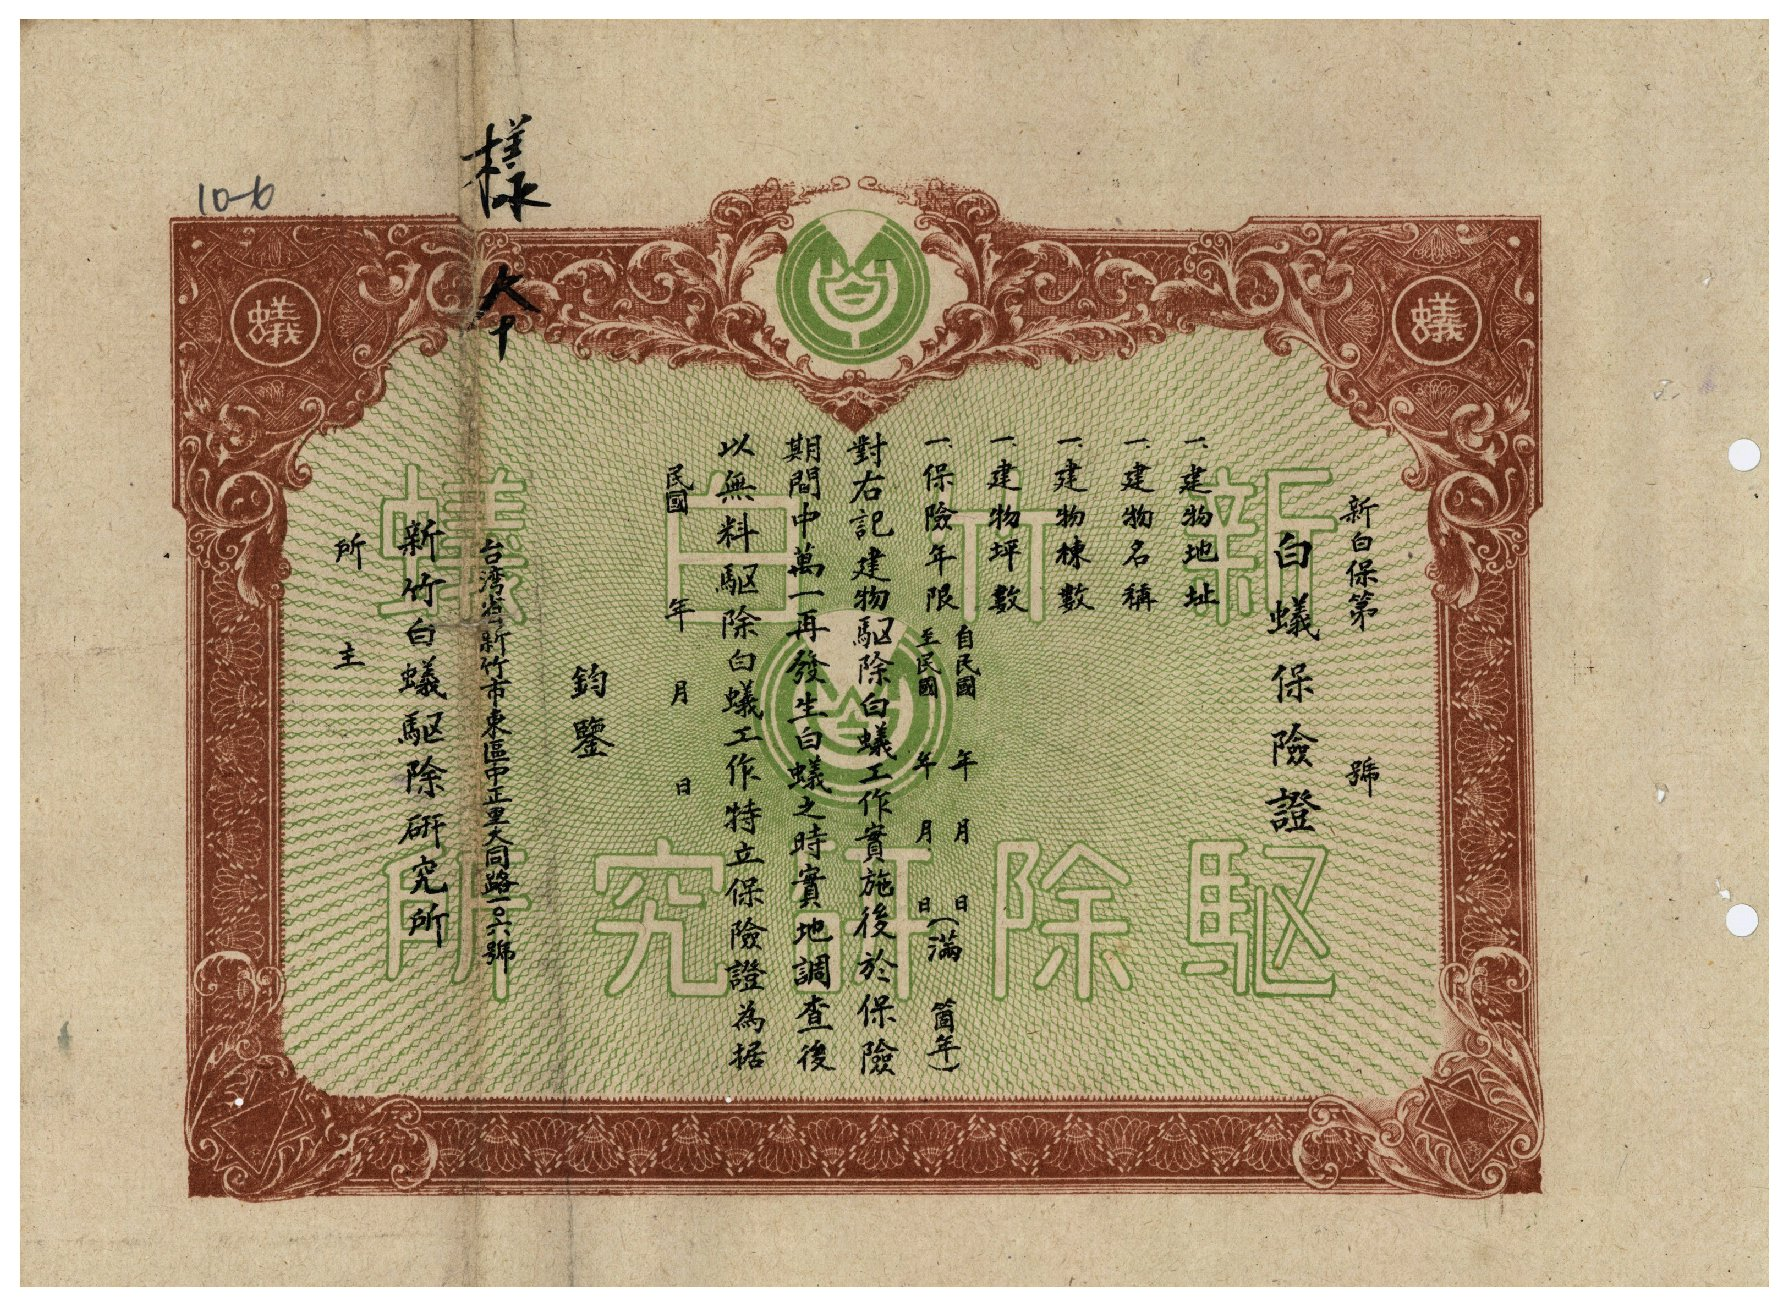 新白保第　　號
白蟻保險證
一、建物地址
一、建物名稱
一、建物棟數
一、建物坪數
一、保險年限 自民國　年　月　日 至民國　年　月　日 (滿　箇年)
對右記建物驅除白蟻工作實施後於保險
期間中萬一再發生白蟻之時實地調查後
以無料驅除白蟻工作特立保險證為据
民國　年　月　日
鈞鑒
台湾省新竹市東區中正里大同路一〇六號
新竹白蟻驅除研究所
所主
樣本
10-6
蟻
蟻
新竹白蟻
驅除研究所